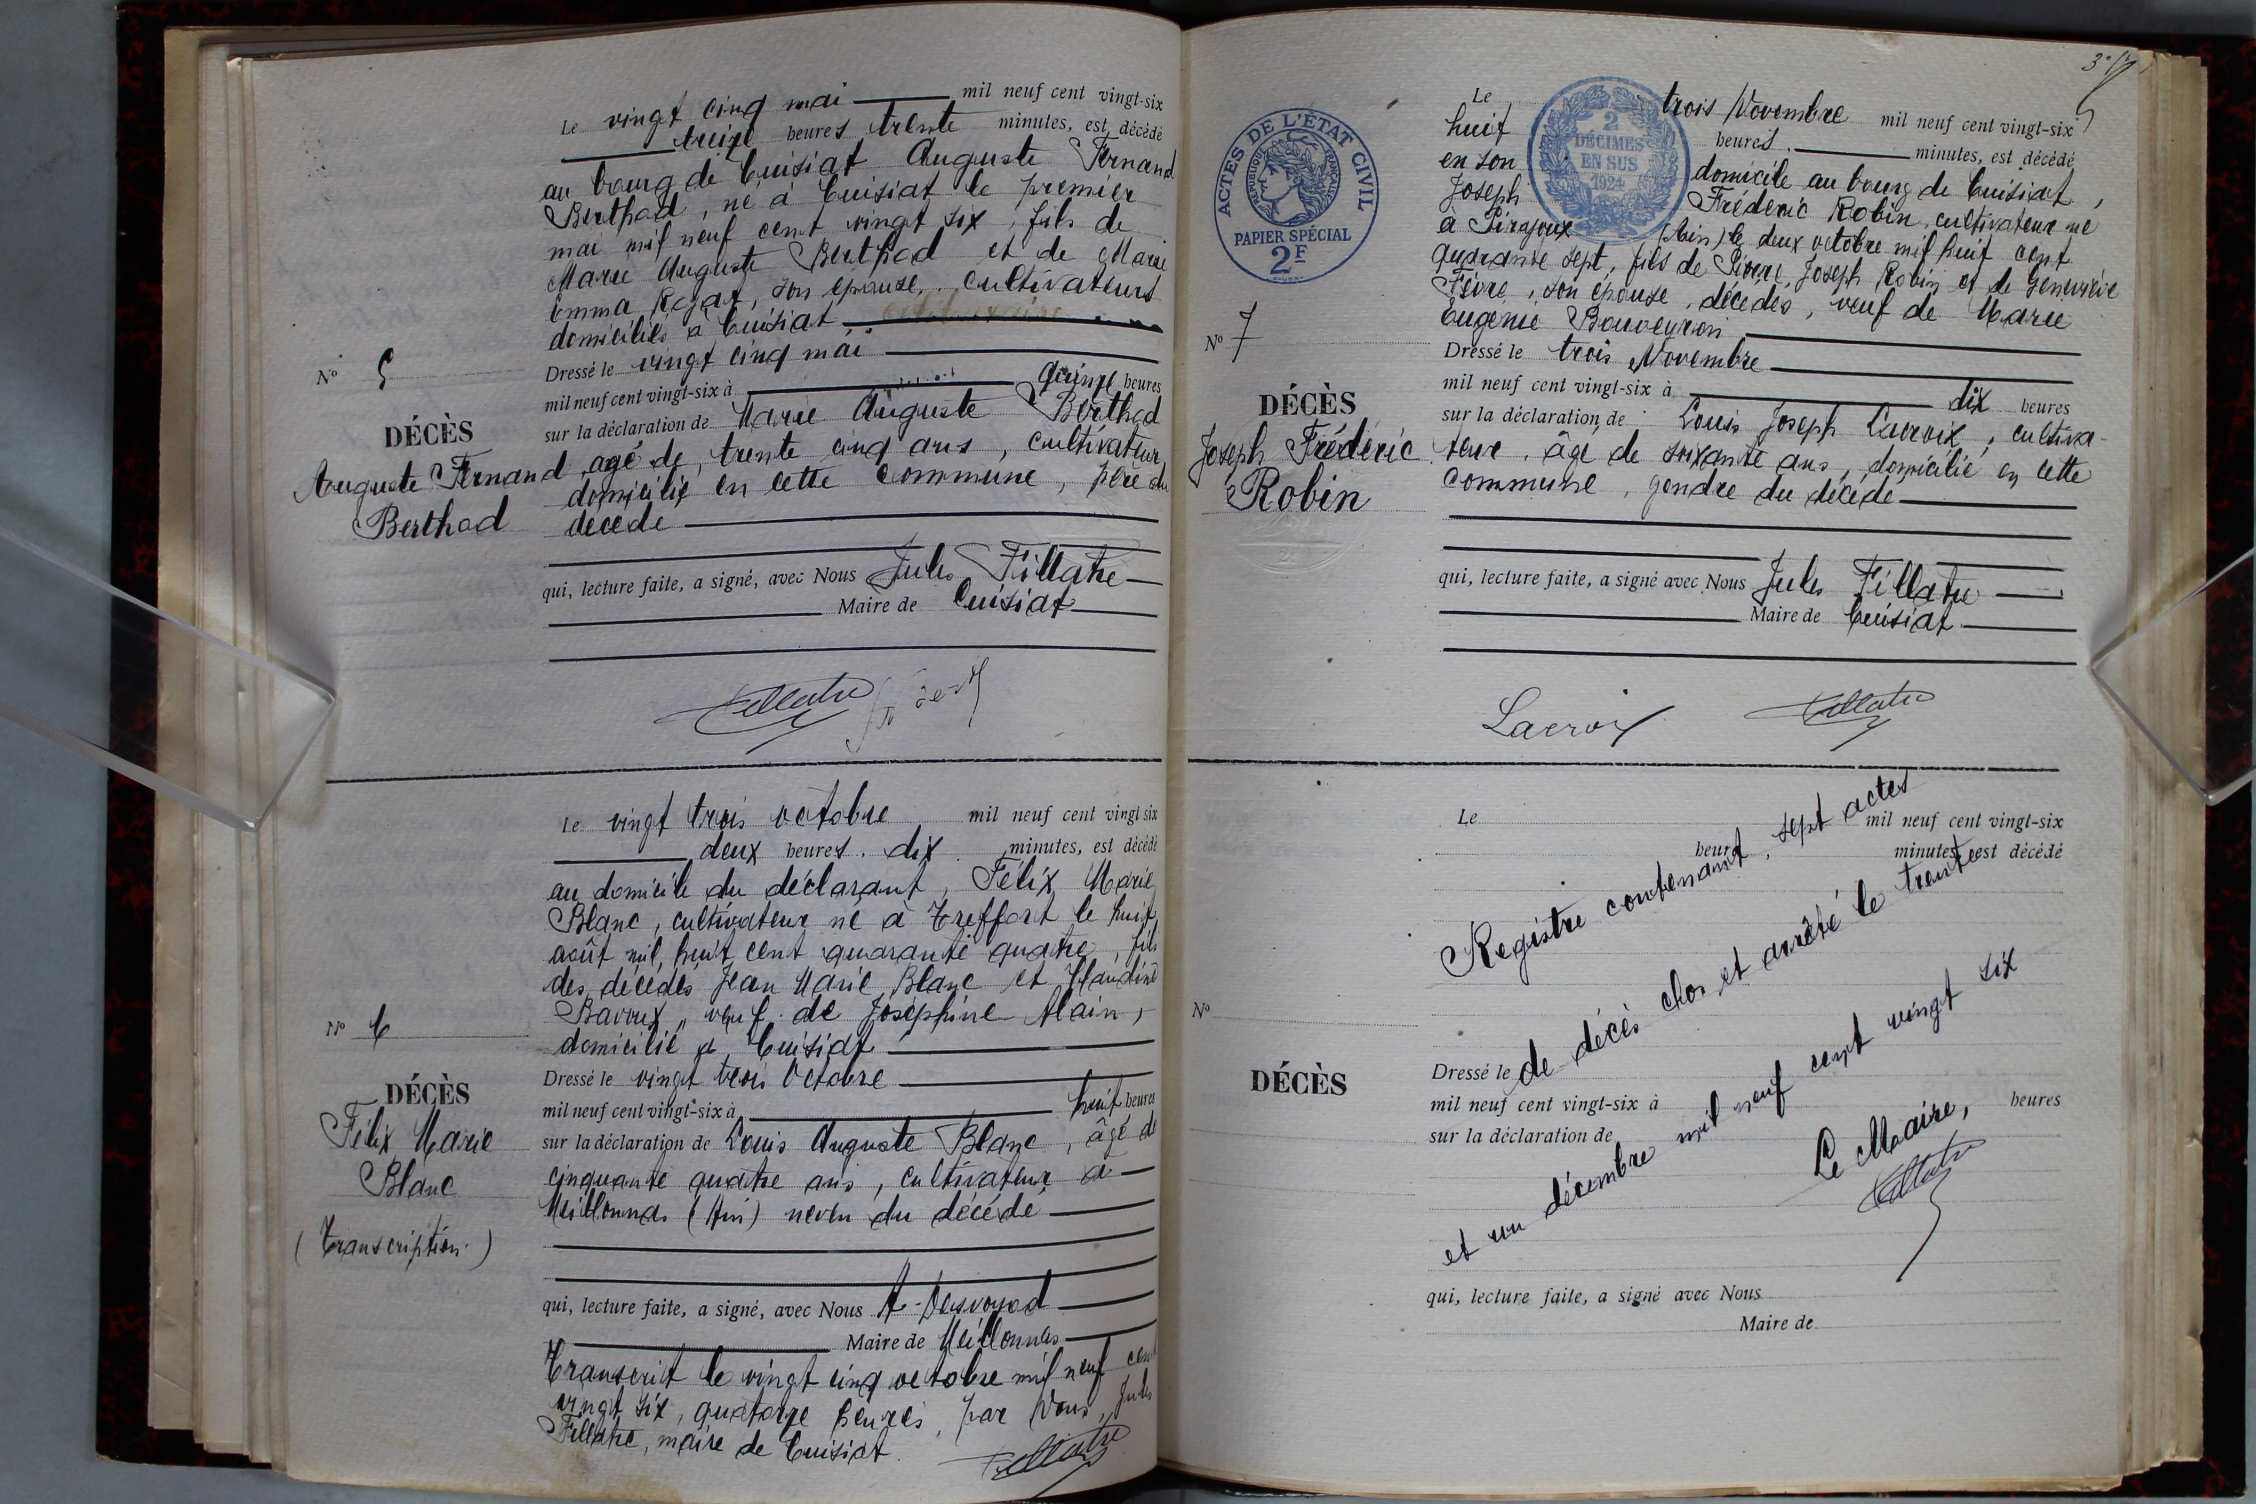 Le vingt cinq mai mil neuf cent vingt-six
treize heures trente minutes, est décédé
au bourg de Cuisiat Auguste Fernand
Berthod, né à Cuisiat le premier
mai mil neuf cent vingt six, fils de
Marie Auguste Berthod et de Marie
Emma son épouse, cultivateurs
domiciliés à Cuisiat
Dressé le vingt cinq mai
mil neuf cent vingt-six à quinze heures
sur la déclaration de Marie Auguste Berthod
âgé de trente cinq ans, cultivateur
domicilié en cette commune, père du
décédé
qui, lecture faite, a signé, avec Nous Jules Fillatre
Maire de Cuisiat
Nº 5
DÉCÈS
Auguste Fernand
Berthod
Fillatre
Le vingt trois octobre mil neuf cent vingt six
deux heures dix minutes, est décédé
au domicile du déclarant, Félix Marie
Blanc, cultivateur né à Treffort le huit
août mil huit cent quarante quatre, fils
des décédés Jean Marie Blanc et Claudine
Bavoux, veuf de Joséphine Alain,
domicilié à Cuisiat
Dressé le vingt trois Octobre
mil neuf cent vingt-six à huit heures
sur la déclaration de Louis Auguste Blanc, âgé de
cinquante quatre ans, cultivateur à
Meillonnas (Ain) neveu du décédé
qui, lecture faite, a signé, avec Nous A. Desvoyod
Maire de Meillonnas
Transcrit le vingt cinq octobre mil neuf cent
vingt six, quatorze heures, par Nous, Jules
Fillatre, maire de Cuisiat.
Fillatre
Nº 6
DÉCÈS
Félix Marie
Blanc
(Transcription)
ACTES DE L'ÉTAT CIVIL
RÉPUBLIQUE FRANÇAISE
PAPIER SPÉCIAL
2F
2
DÉCIMES
EN SUS
1924
Le trois Novembre mil neuf cent vingt-six
huit heures minutes, est décédé
en son domicile au bourg de Cuisiat,
Joseph Frédéric Robin, cultivateur né
à Pirajoux (Ain) le deux octobre mil huit cent
quarante sept, fils de Pierre Joseph Robin et de Geneviève
Fèvre, son épouse, décédés, veuf de Marie
Eugénie Bouveyron
Dressé le trois Novembre
mil neuf cent vingt-six à dix heures
sur la déclaration de Louis Joseph Lacroix, cultiva-
teur, âgé de soixante ans, domicilié en cette
commune, gendre du décédé
qui, lecture faite, a signé avec Nous Jules Fillatre
Maire de Cuisiat
Nº 7
DÉCÈS
Joseph Frédéric
Robin
Lacroix
Fillatre
Le mil neuf cent vingt-six
heures minutes, est décédé
Registre contenant sept actes
de décès clos et arrêté le trente
et un décembre mil neuf cent vingt six
Le Maire,
Fillatre
Nº
DÉCÈS
Dressé le
mil neuf cent vingt-six à heures
sur la déclaration de
qui, lecture faite, a signé avec Nous
Maire de